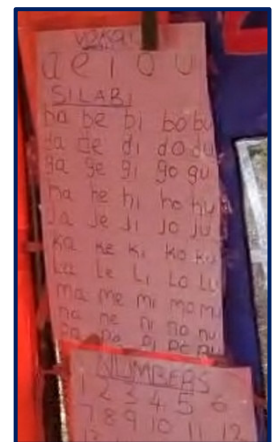 VOKALI
a e i o u
SILABI
ba be bi bo bu
da de di do du
ga ge gi go gu
ha he hi ho hu
Ja Je Ji Jo Ju
Ka Ke Ki Ko Ku
La Le Li Lo Lu
ma me mi mo mu
na ne ni no nu
pa pe pi po pu
NUMBERS
1 2 3 4 5 6
7 8 9 10 11 12
13